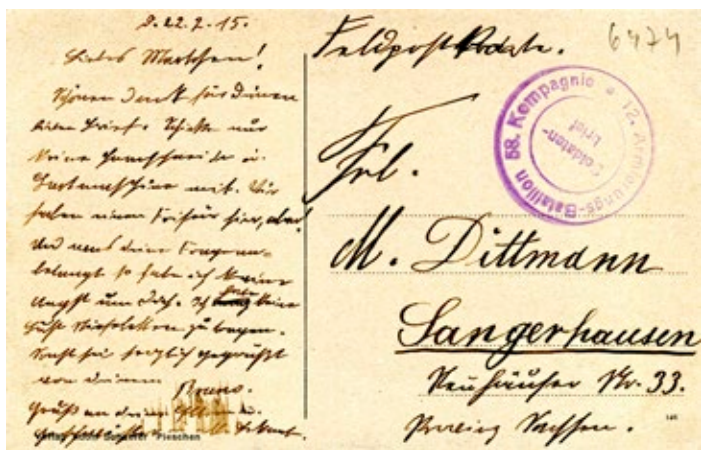 d. 22.2.15.
Liebes Martchen!
Schönen Dank für Deinen
lieben Brief. Schicke nur
keine
mit. Wir
haben einen Friseur hier, aber
Und was deine
belangt so habe ich keine
Angst um Dich. Ich habe keine
Lust zu tragen.
Sonst sei herzlich gegrüßt
von deinem
Bruno.
Gruß an deine Eltern u.
Verlag Adolf Schaefer Pleschen
Feldpostkarte.
6474
58. Kompagnie * 12. Armierungs-Bataillon
Soldaten-
brief
Frl.
M. Dittmann
Sangerhausen
Neuhäuser Str. 33.
Provinz Sachsen.